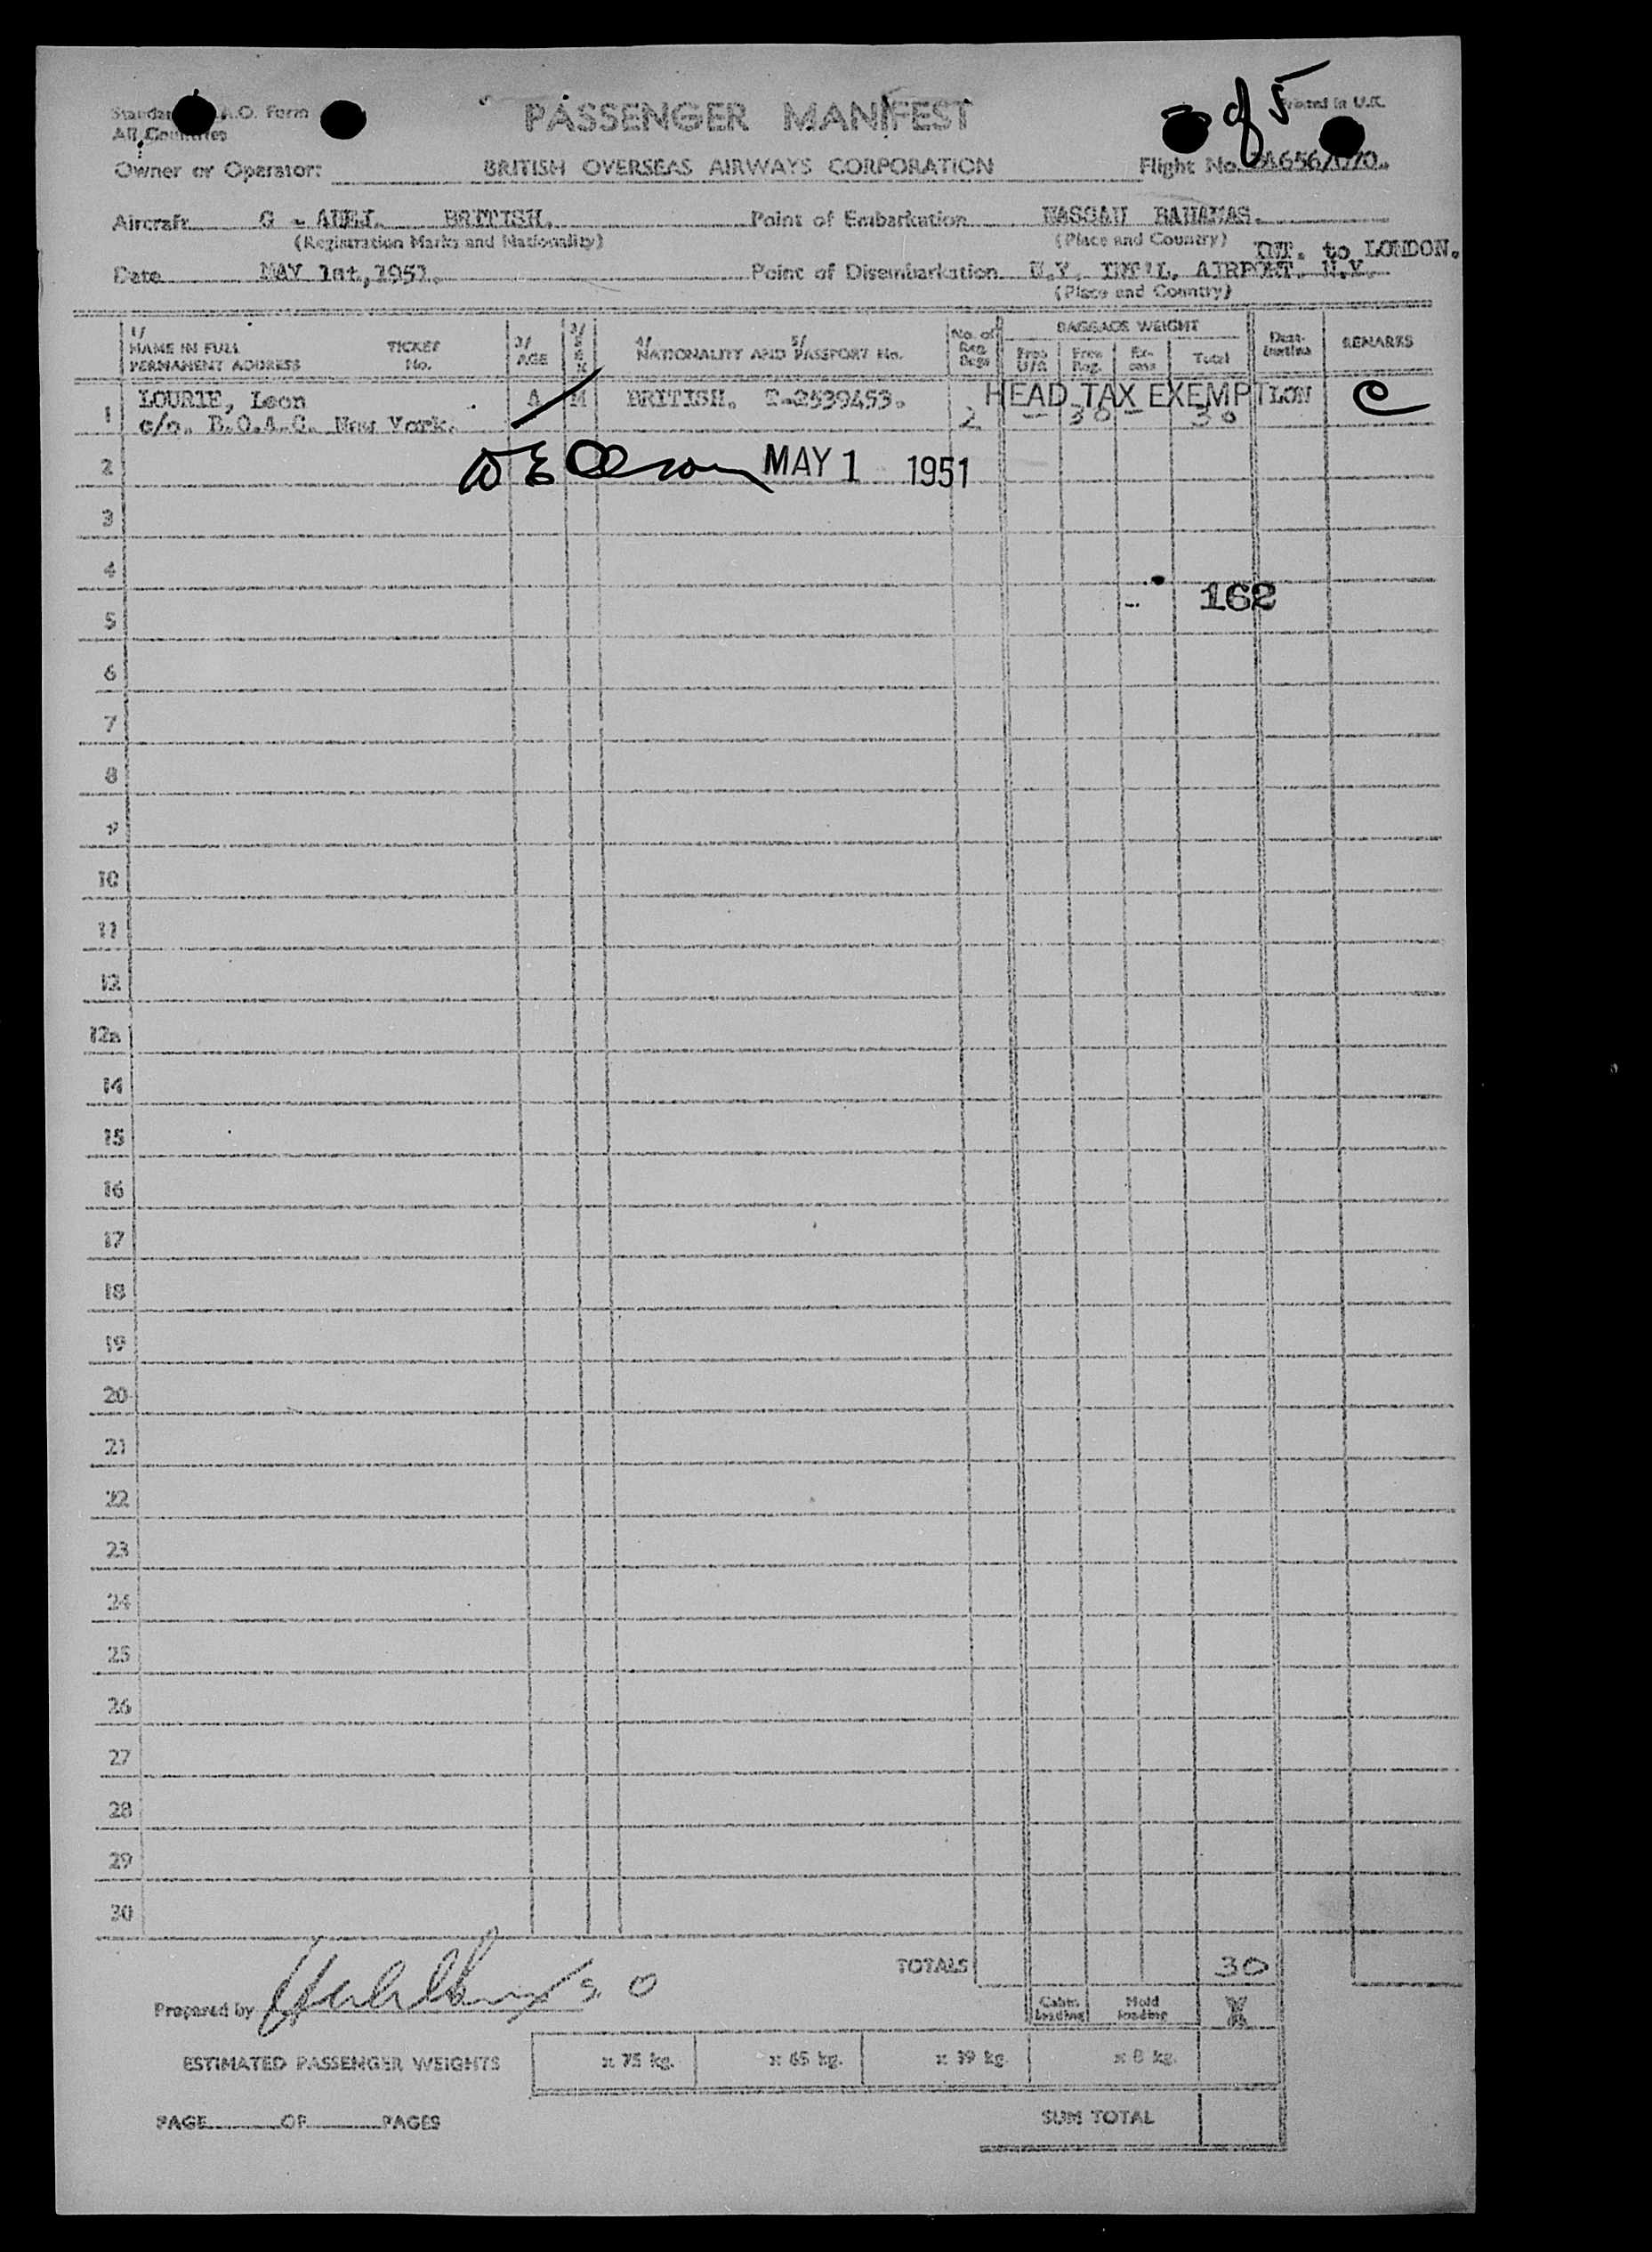 3 of 5
PASSENGER MANIFEST
Printed in U.K.
A.O. Form
All Countries
Owner or Operator: BRITISH OVERSEAS AIRWAYS CORPORATION Flight No.
Aircraft G - BRITISH. Point of Embarkation NASSAU BAHAMAS.
(Registration Marks and Nationality) (Place and Country)
INT. to LONDON.
Date MAY 1st, 1951. Point of Disembarkation N.Y. INT'L. AIRPORT. N.Y.
(Place and Country)
1/ NAME IN FULL PERMANENT ADDRESS TICKET No. 2/ AGE 3/ SEX 4/ NATIONALITY AND 5/ PASSPORT No. No. of Reg. Bags BAGGAGE WEIGHT Free Free Reg. Ex-cess Total Dest-ination REMARKS
1 LOURIE, Leon A M BRITISH. 2539453. HEAD TAX EXEMPTION LON C
c/o. B.O.A.C. New York. 2 - 30 - 30
2 MAY 1 1951
3
4
162
5
6
7
8
9
10
11
12
12a
14
15
16
17
18
19
20
21
22
23
24
25
26
27
28
29
30
TOTALS 30
Prepared by
Cabin loading Hold loading
ESTIMATED PASSENGER WEIGHTS x 75 kg. x 65 kg. x 39 kg. x 8 kg.
PAGE OF PAGES SUM TOTAL